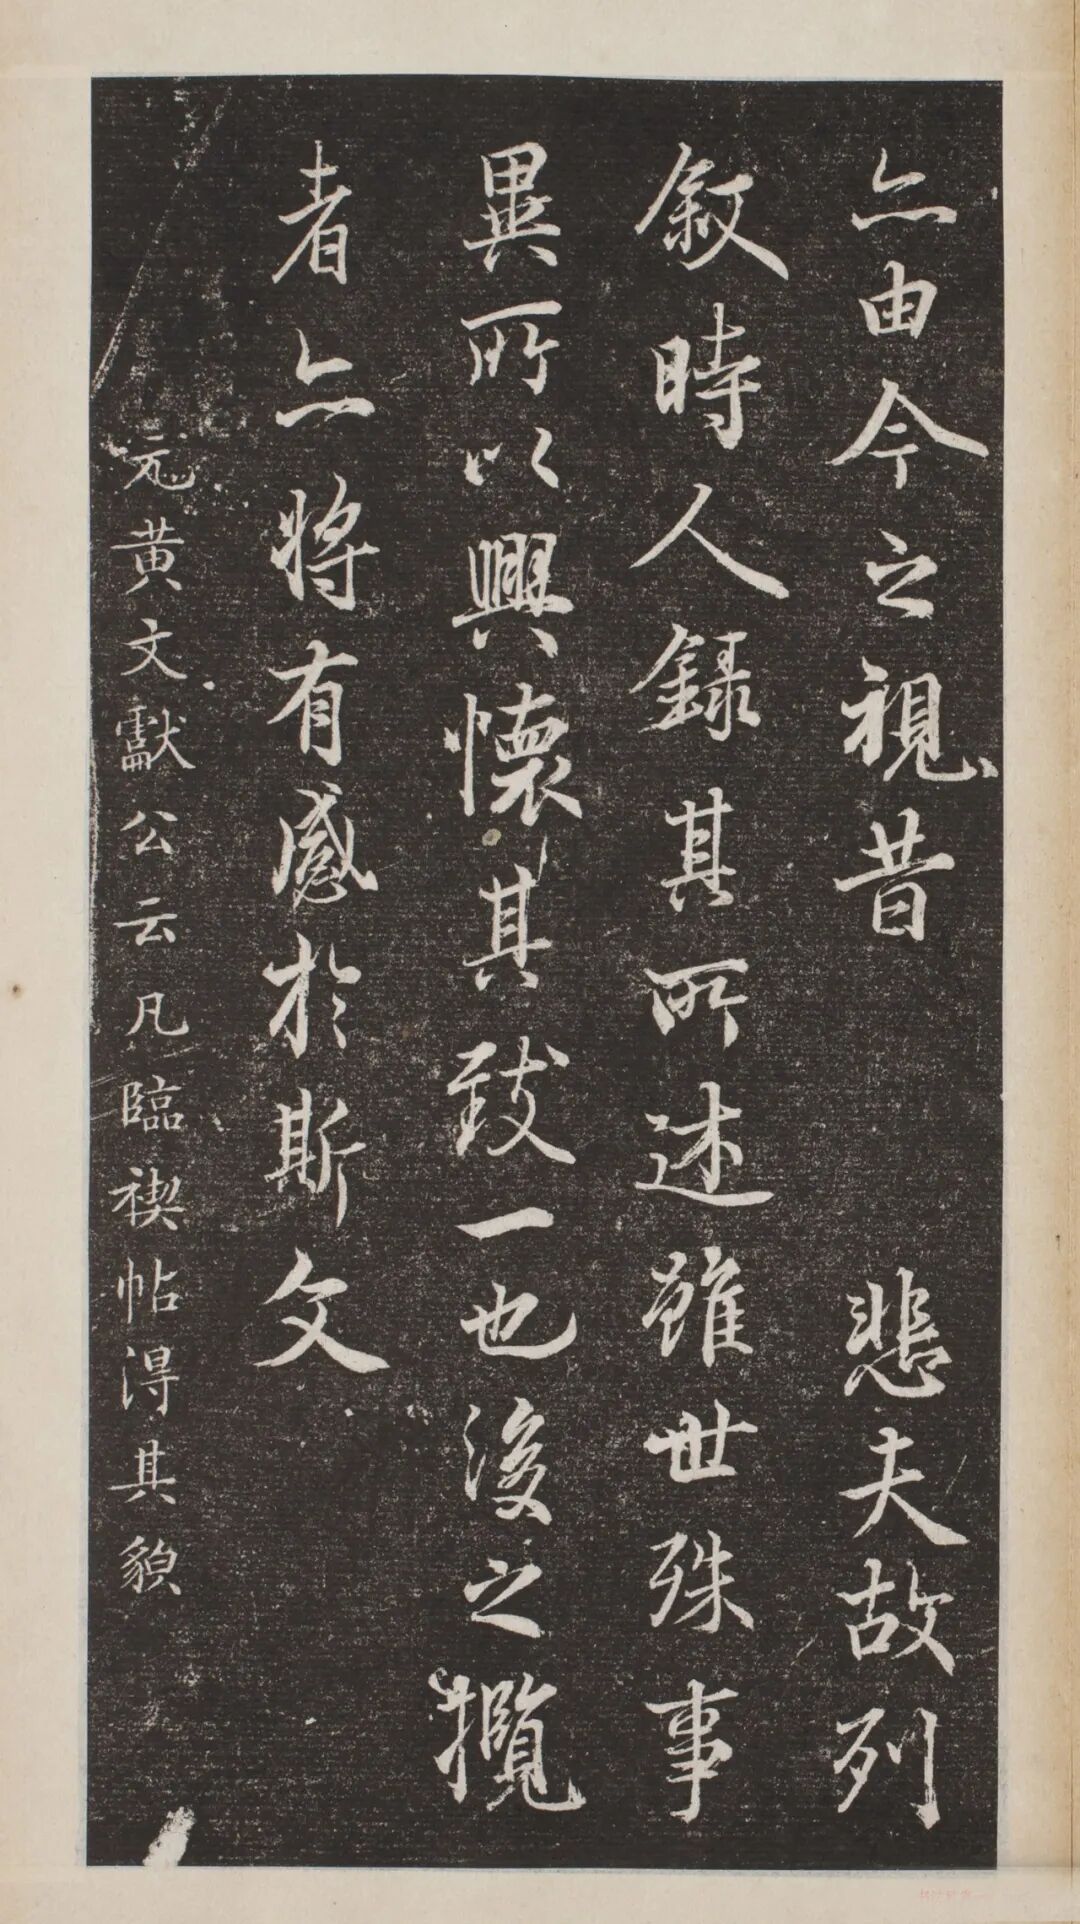 亦由今之視昔　悲夫故列
叙時人録其所述雖世殊事
異所以興懷其致一也後之攬
者亦將有感於斯文
元黃文獻公云凡臨禊帖得其貌